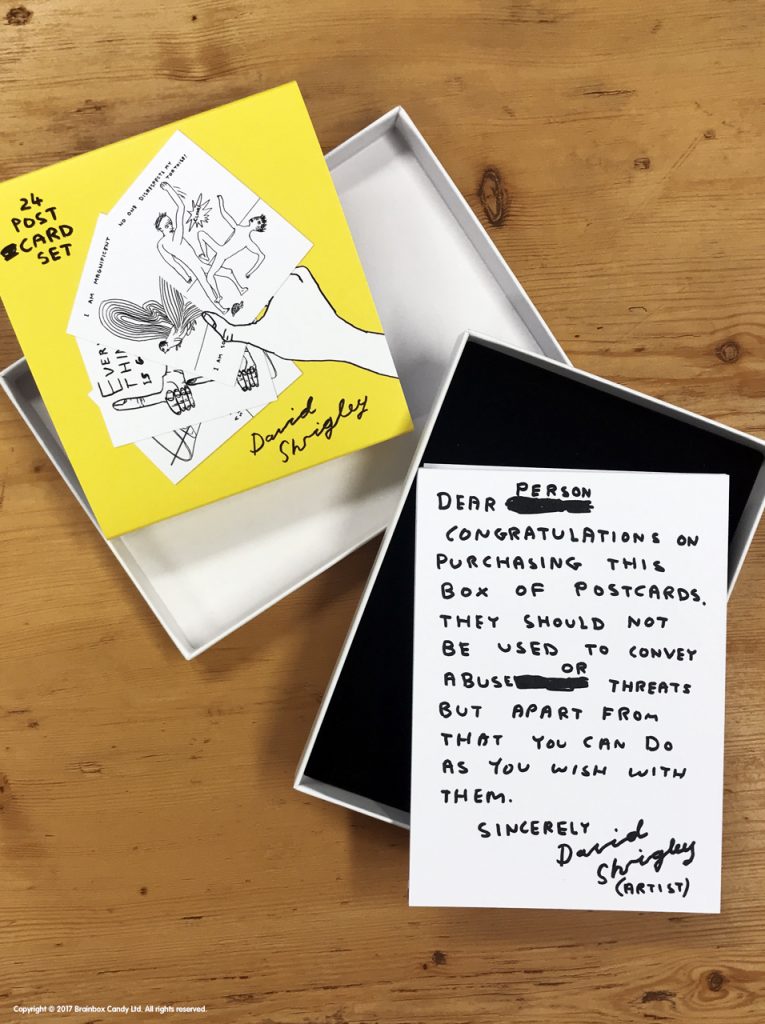 24
POST
CARD
SET
I AM MAGNIFICENT NO ONE DISRESPECTS MY
TORTOISE!
EVERY
THIN
IS
I AM
David
Shrigley
DEAR PERSON
CONGRATULATIONS ON
PURCHASING THIS
BOX OF POSTCARDS.
THEY SHOULD NOT
BE USED TO CONVEY
ABUSE OR THREATS
BUT APART FROM
THAT YOU CAN DO
AS YOU WISH WITH
THEM.
SINCERELY
David
Shrigley
(ARTIST)
Copyright © 2017 Brainbox Candy Ltd. All rights reserved.